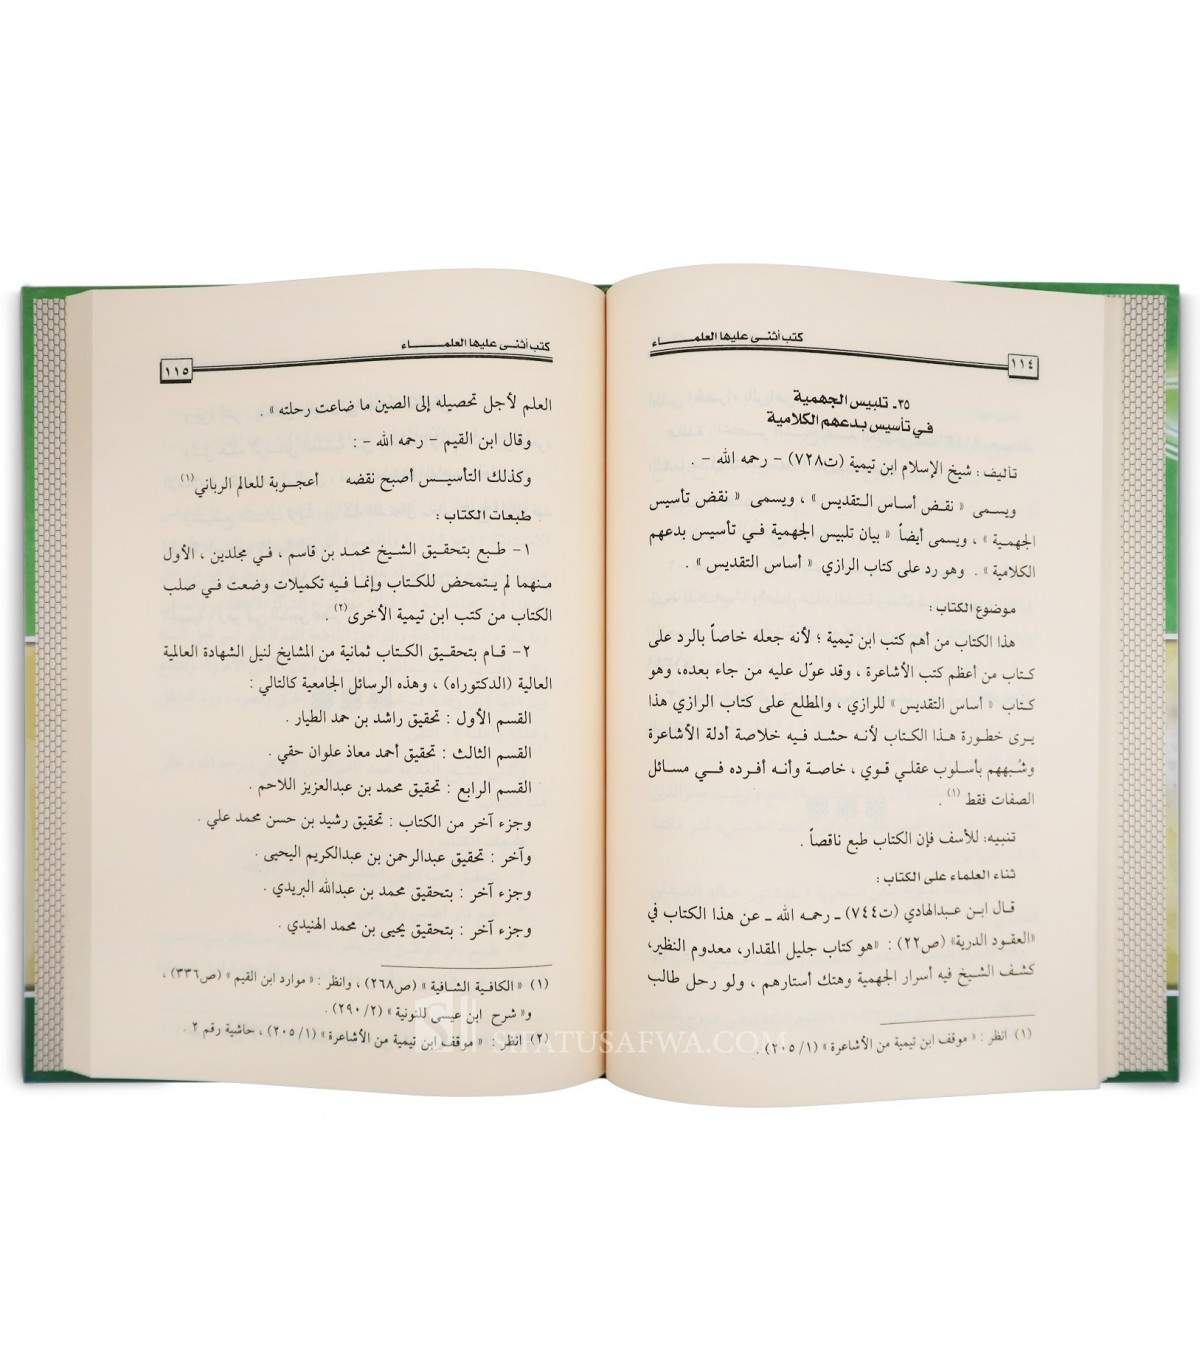 كتب أثنى عليها العلمـــــاء
١١٤
٣٥ـ تلبيس الجهمية
في تأسيس بدعهم الكلامية
تأليف : شيخ الإسلام ابن تيمية (ت٧٢٨) – رحمه الله – .
ويسمى « نقض أساس التقديس » ، ويسمى « نقض تأسيس
الجهمية » ، ويسمى أيضاً « بيان تلبيس الجهمية في تأسيس بدعهم
الكلامية » . وهو رد على كتاب الرازي « أساس التقديس » .
موضوع الكتاب :
هذا الكتاب من أهم كتب ابن تيمية ؛ لأنه جعله خاصاً بالرد على
كتاب من أعظم كتب الأشاعرة ، وقد عوّل عليه من جاء بعده، وهو
كتاب « أساس التقديس » للرازي ، والمطلع على كتاب الرازي هذا
يرى خطورة هذا الكتاب لأنه حشد فيه خلاصة أدلة الأشاعرة
وشبههم بأسلوب عقلي قوي ، خاصة وأنه أفرده في مسائل
الصفات فقط (١) .
تنبيه: للأسف فإن الكتاب طبع ناقصاً .
ثناء العلماء على الكتاب :
قال ابن عبدالهادي (ت٧٤٤) ـ رحمه الله ـ عن هذا الكتاب في
«العقود الدرية» (ص٢٢) : «هو كتاب جليل المقدار، معدوم النظير،
كشف الشيخ فيه أسرار الجهمية وهتك أستارهم ، ولو رحل طالب
(١) انظر : « موقف ابن تيمية من الأشاعرة » (٢٠٥/١) .
كتب أثنى عليها العلمـــــاء
١١٥
العلم لأجل تحصيله إلى الصين ما ضاعت رحلته » .
وقال ابن القيم – رحمه الله – :
وكذلك التأسيس أصبح نقضه أعجوبة للعالم الرباني(١)
طبعات الكتاب :
١– طبع بتحقيق الشيخ محمد بن قاسم ، في مجلدين ، الأول
منهما لم يتمحض للكتاب وإنما فيه تكميلات وضعت في صلب
الكتاب من كتب ابن تيمية الأخرى(٢) .
٢– قام بتحقيق الكتاب ثمانية من المشايخ لنيل الشهادة العالمية
العالية (الدكتوراه) ، وهذه الرسائل الجامعية كالتالي :
القسم الأول : تحقيق راشد بن حمد الطيار .
القسم الثالث : تحقيق أحمد معاذ علوان حقي .
القسم الرابع : تحقيق محمد بن عبدالعزيز اللاحم .
وجزء آخر من الكتاب : تحقيق رشيد بن حسن محمد علي .
وآخر : تحقيق عبدالرحمن بن عبدالكريم اليحيى .
وجزء آخر : بتحقيق محمد بن عبدالله البريدي .
وجزء آخر : بتحقيق يحيى بن محمد الهنيدي .
(١) « الكافية الشافية » (ص٢٦٨) ، وانظر : « موارد ابن القيم » (ص٣٣٦) ،
و« شرح ابن عيسى للنونية » (٢٩٠/٢) .
(٢) انظر : « موقف ابن تيمية من الأشاعرة » (٢٠٥/١) ، حاشية رقم ٢ .
SIFATUSAFWA.COM